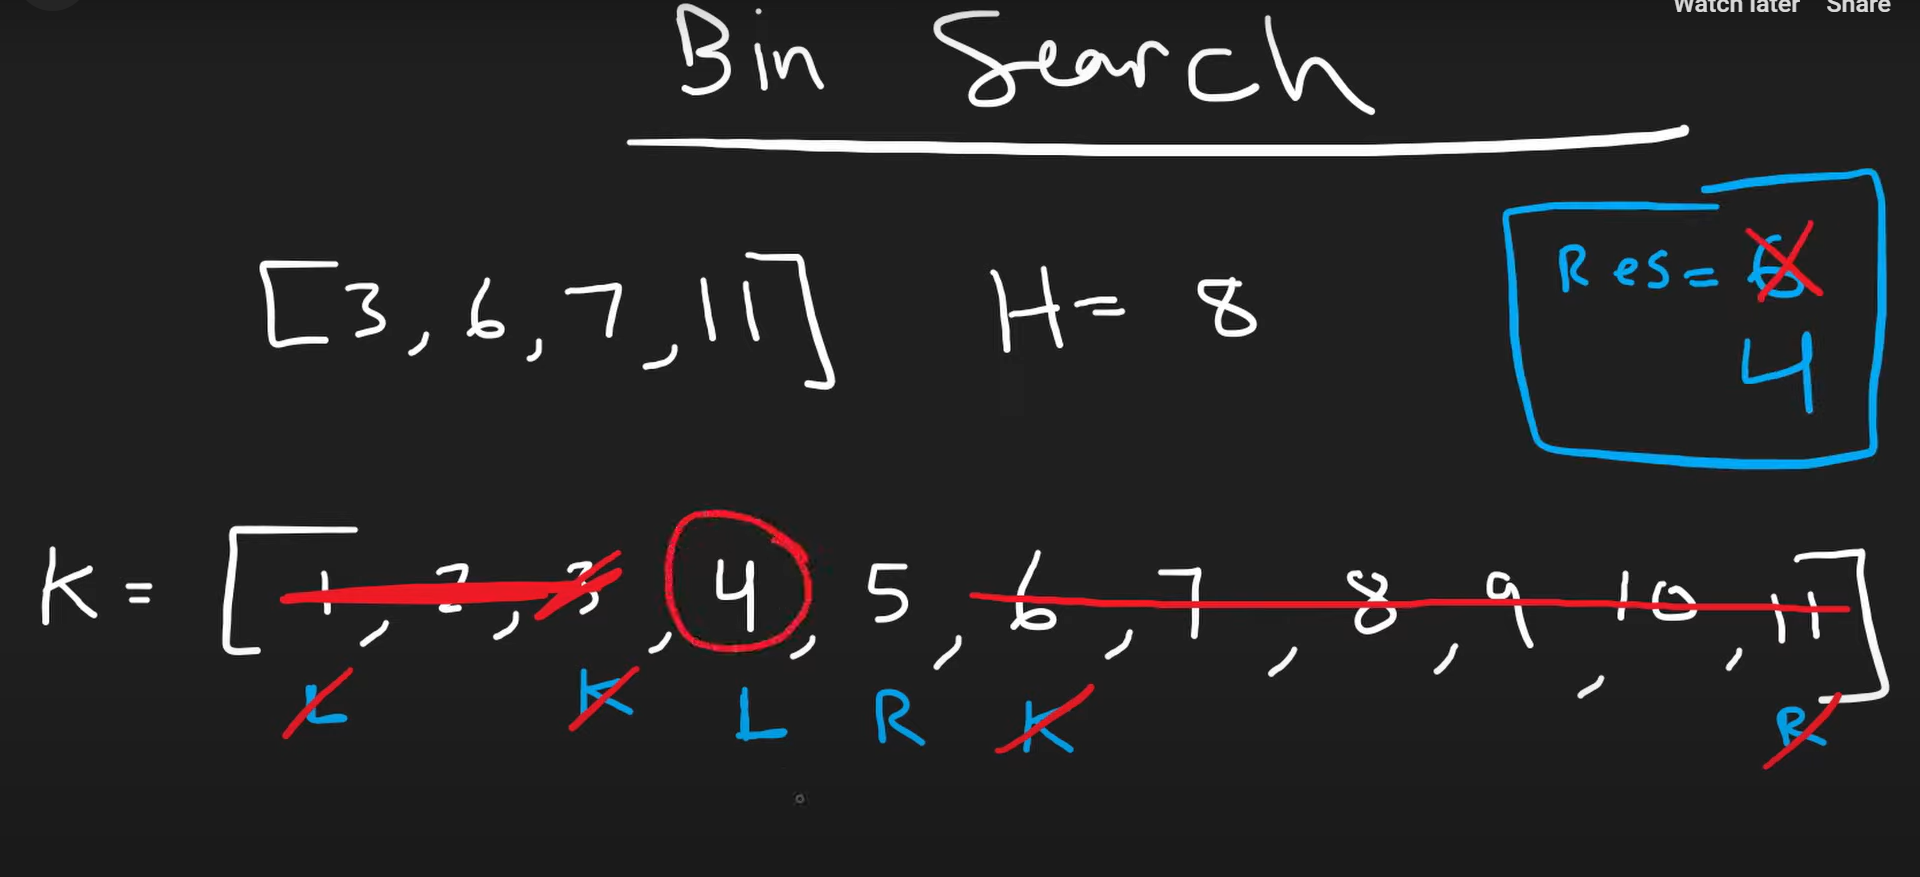 Watch later Share
Bin Search
[3, 6, 7, 11] H = 8
Res = 6
4
K = [1, 2, 3, 4, 5, 6, 7, 8, 9, 10, 11]
L K L R K R